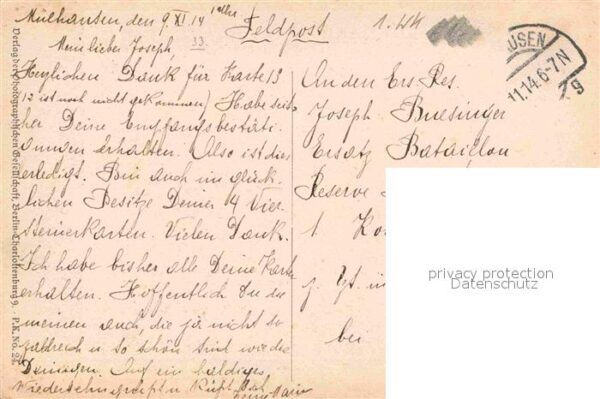 Mülhausen, den 9. XI. 14
Feldpost
1. WK
Mein lieber Joseph,
13
Herzlichen Dank für Karte 13
12 ist noch nicht gekommen) Habe seit
her Deine Empfangsbestäti
gungen erhalten. Also ist dies
erledigt. Bin auch im glück
lichen Besitze Deiner 4 Vier
steinerkarten. Vielen Dank.
Ich habe bisher alle Deine Karten
erhalten. Hoffentlich Du die
meinen auch, die ja nicht so
zahlreich u so schön sind wie die
Deinigen. Auf ein baldiges
Wiedersehn grüßt u küßt Dich
An den Ers. Res.
Joseph Buesinger
Ersatz Bataillon
Reserve
1
z. Zt. in
bei
USEN
11.14.6-7N
g
Verlag der Photographischen Gesellschaft, Berlin-Charlottenburg 9. - P.K.No. 24
privacy protection
Datenschutz